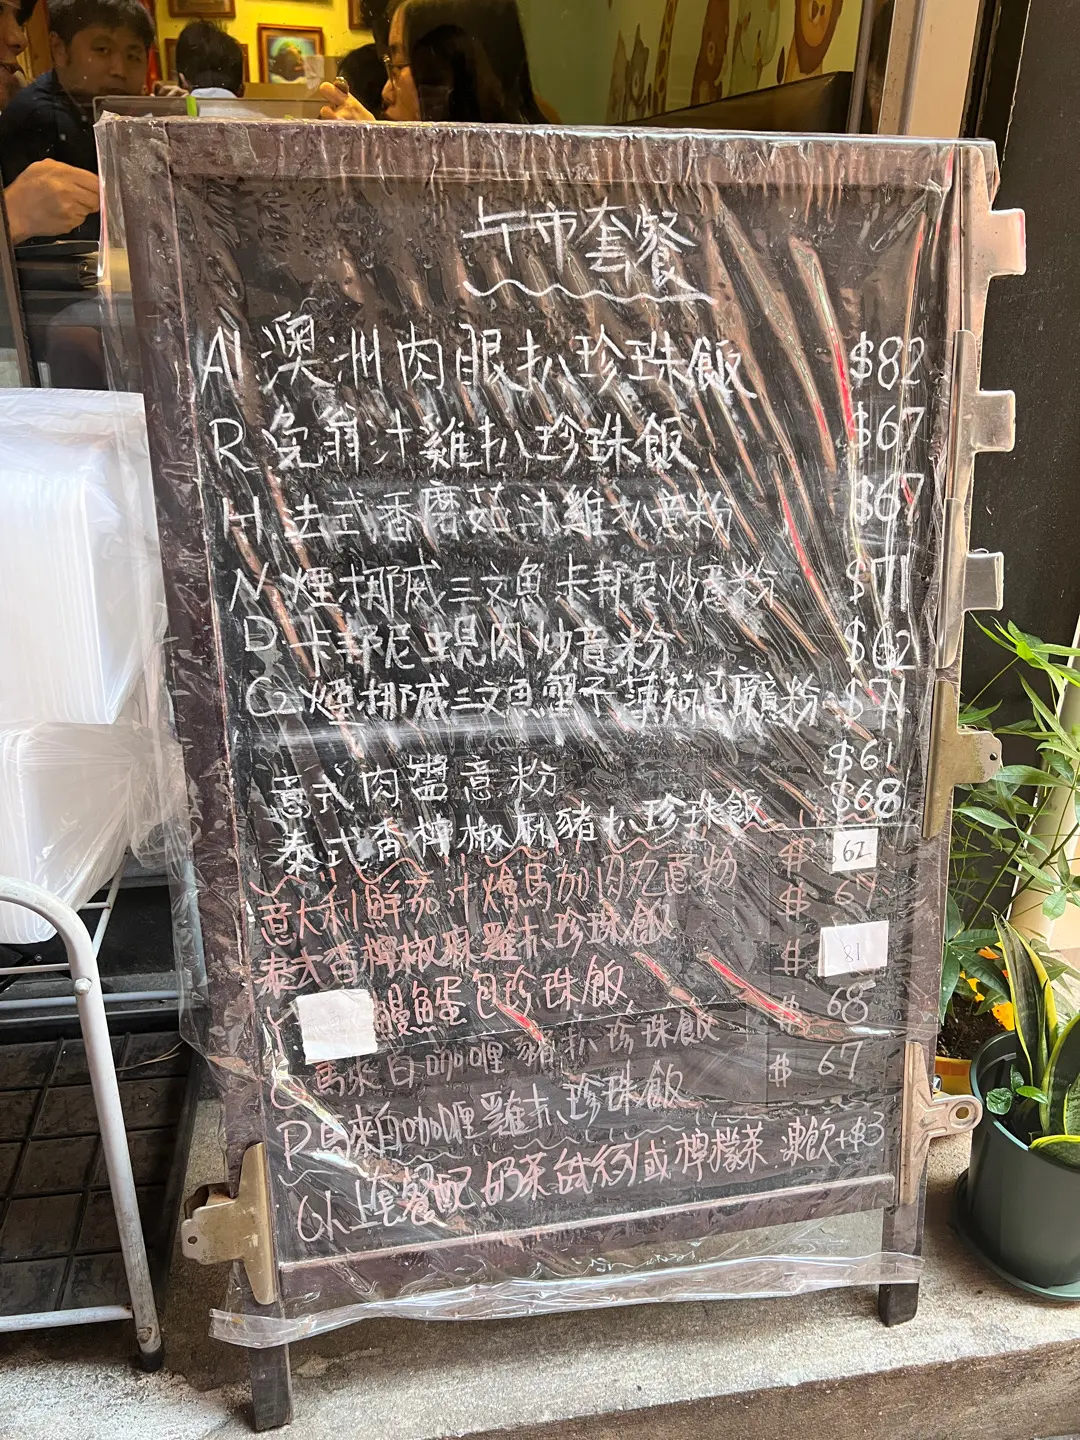 午市套餐
A 澳洲肉眼扒珍珠飯 $82
R 免翁汁雞扒珍珠飯 $67
H. 法式香磨菇汁雞扒意粉 $67
N 煙挪威三文魚卡邦尼炒意粉 $71
D 卡邦尼蜆肉炒意粉 $62
G 煙挪威三文魚蟹子薄荷 粉 $71
意式肉醬意粉 $61
泰式香檸椒麻豬扒珍珠飯 $68
意大利鮮茄汁燴馬加肉丸意粉 $ 62
泰式香檸椒麻雞扒珍珠飯 $ 67
鰻魚蛋包珍珠飯 $ 81
馬來白咖喱豬扒珍珠飯 $ 68
R 馬來白咖喱雞扒珍珠飯 $ 67
上套餐配.奶茶 或檸檬茶 凍飲+$3